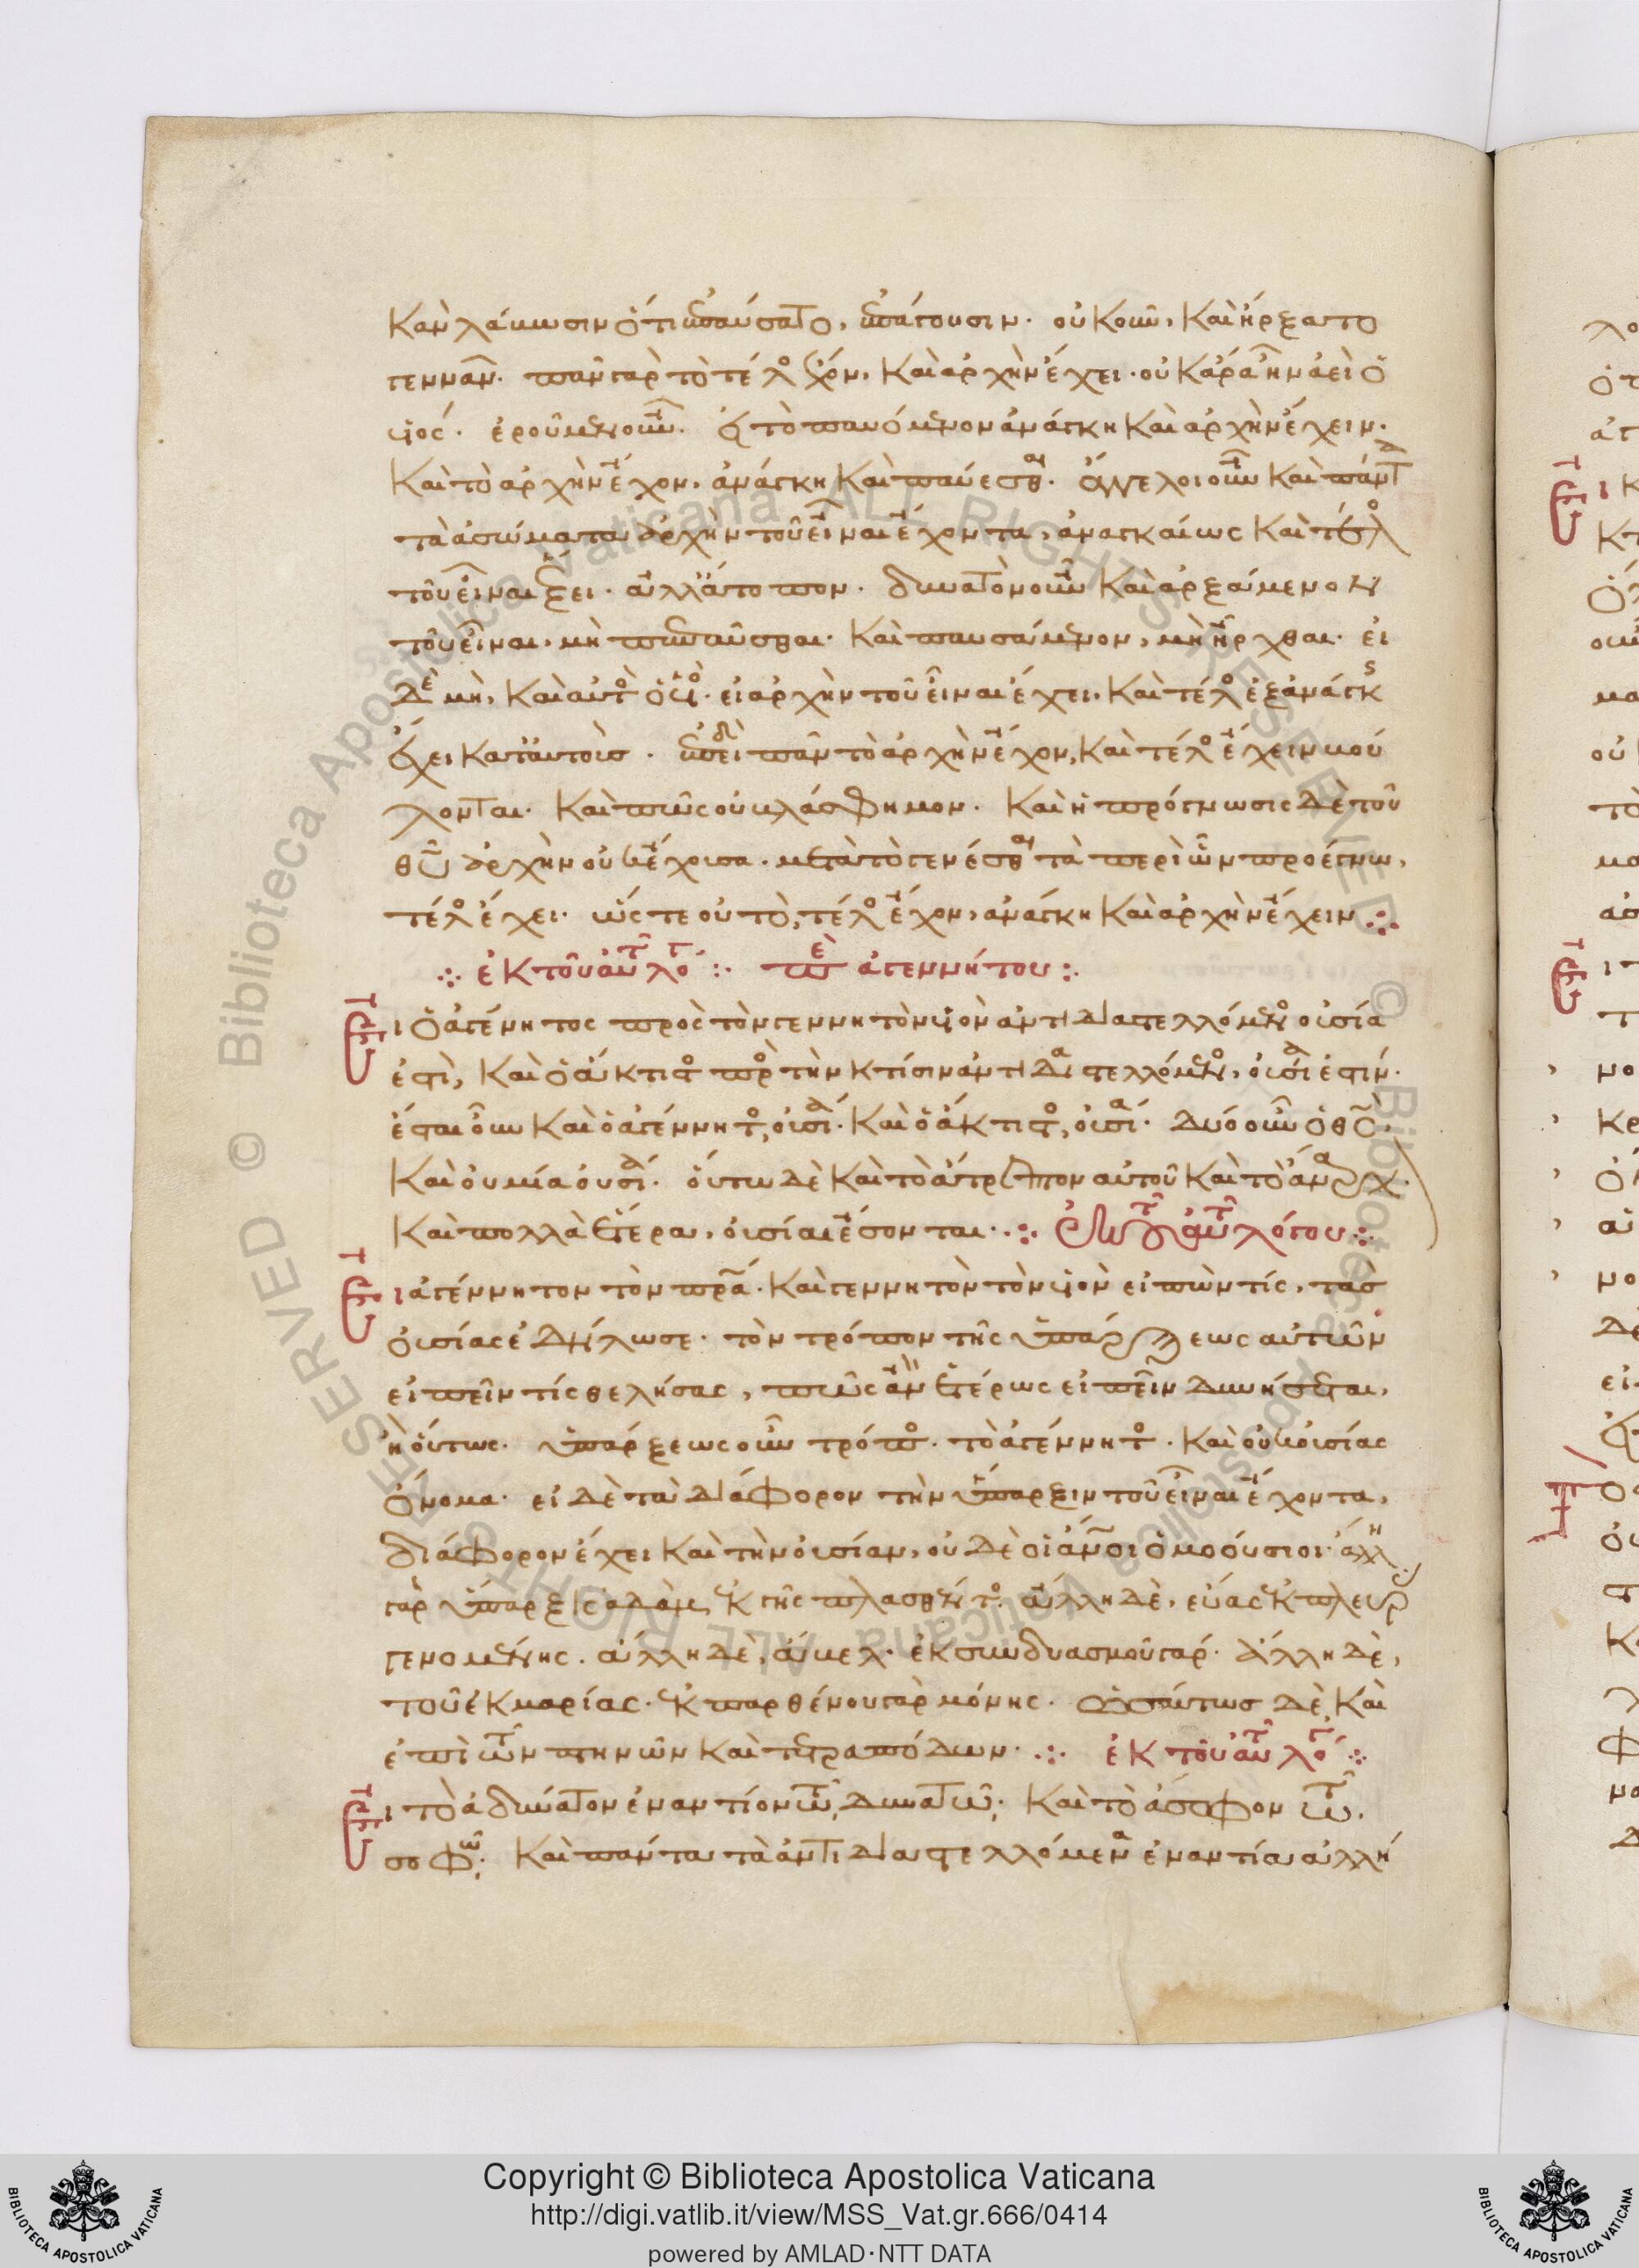 κἂν λάβωσιν ὅτι ἐπαύσατο, ἐπάγουσιν. οὐκοῦν, καὶ ἤρξατο
γεννᾶν. πᾶν γὰρ τὸ τέλος ἔχον, καὶ ἀρχὴν ἔχει. οὐκ ἄρα ἦν ἀεὶ ὁ
υἱός. ἐροῦμεν οὖν. εἰ τὸ παυόμενον ἀνάγκη καὶ ἀρχὴν ἔχειν.
καὶ τὸ ἀρχὴν ἔχον, ἀνάγκη καὶ παύεσθαι. ἄγγελοι οὖν καὶ πάντα
τὰ ἀσώματα ἀρχὴν τοῦ εἶναι ἔχοντα, ἀναγκαίως καὶ τέλος
τοῦ εἶναι ἕξει. ἀλλ' ἄτοπον. δυνατὸν οὖν καὶ ἀρξάμενον
τοῦ εἶναι, μὴ πεπαῦσθαι. καὶ παυσάμενον, μὴ ἦρχθαι. εἰ
δὲ μὴ, καὶ αὐτὸς ὁ υἱὸς. εἰ ἀρχὴν τοῦ εἶναι ἔχει, καὶ τέλος ἐξ ἀνάγκης
ἕξει κατ' αὐτούς. ἐπειδὴ πᾶν τὸ ἀρχὴν ἔχον, καὶ τέλος ἔχειν βού
λονται. καὶ πῶς οὐ βλάσφημον. καὶ ἡ πρόγνωσις δὲ τοῦ
θεοῦ ἀρχὴν οὐκ ἔχουσα. μετὰ τὸ γενέσθαι τὰ περὶ ὧν προέγνω,
τέλος ἔχει. ὥστε οὐ τὸ, τέλος ἔχον, ἀνάγκη καὶ ἀρχὴν ἔχειν ⁘
⁘ ἐκ τοῦ αὐτοῦ λόγου : περὶ ἀγεννήτου :
Εἰ ὁ ἀγένητος πρὸς τὸν γεννητὸν υἱὸν ἀντιδιαστελλόμενος οὐσία
ἐστὶ, καὶ ὁ ἄκτιστος πρὸς τὴν κτίσιν ἀντιδιαστελλόμενος, οὐσία ἐστίν.
ἔσται οὖν καὶ ὁ ἀγέννητος, οὐσία. καὶ ὁ ἄκτιστος, οὐσία. δύο οὖν ὁ θεὸς.
καὶ οὐ μία οὐσία. οὕτω δὲ καὶ τὸ ἄτρεπτον αὐτοῦ καὶ τὸ ἄναρχον.
καὶ πολλὰ ἕτερα, οὐσίαι ἔσονται. ⁘ ἐκ τοῦ αὐτοῦ λόγου ⁘
Εἰ ἀγέννητον τὸν πατέρα. καὶ γεννητὸν τὸν υἱὸν εἰπών τίς, τὰς
οὐσίας ἐδήλωσε. τὸν τρόπον τῆς ὑπάρξεως αὐτῶν
εἰπεῖν τίς θελήσας, πῶς ἂν ἑτέρως εἰπεῖν δυνήσεται,
ἢ οὕτως. ὑπάρξεως οὖν τρόπος. τὸ ἀγέννητος. καὶ οὐκ οὐσίας
ὄνομα. εἰ δὲ τὰ διάφορον τὴν ὕπαρξιν τοῦ εἶναι ἔχοντα,
διάφορον ἔχει καὶ τὴν οὐσίαν, οὐδὲ οἱ ἄνθρωποι ὁμοούσιοι. ἄλλη
γὰρ ὕπαρξις ἀδὰμ, ἐκ γῆς πλασθέντος. ἄλλη δὲ, εὔας ἐκ πλευρᾶς
γενομένης. ἄλλη δὲ, ἄβελ. ἐκ συνδυασμοῦ γάρ. ἄλλη δὲ,
τοῦ ἐκ μαρίας. ἐκ παρθένου γὰρ μόνης. ὡσαύτως δὲ καὶ
ἐπὶ τῶν πτηνῶν καὶ τετραπόδων. ⁘ ἐκ τοῦ αὐτοῦ λόγου ⁘
Εἰ τὸ ἀδύνατον ἐναντίον τῷ δυνατῷ. καὶ τὸ ἄσοφον τῷ
σοφῷ. καὶ πάντα τὰ ἀντιδιαστελλόμενα ἐναντία ἀλλή
Copyright © Biblioteca Apostolica Vaticana
http://digi.vatlib.it/view/MSS_Vat.gr.666/0414
powered by AMLAD·NTT DATA